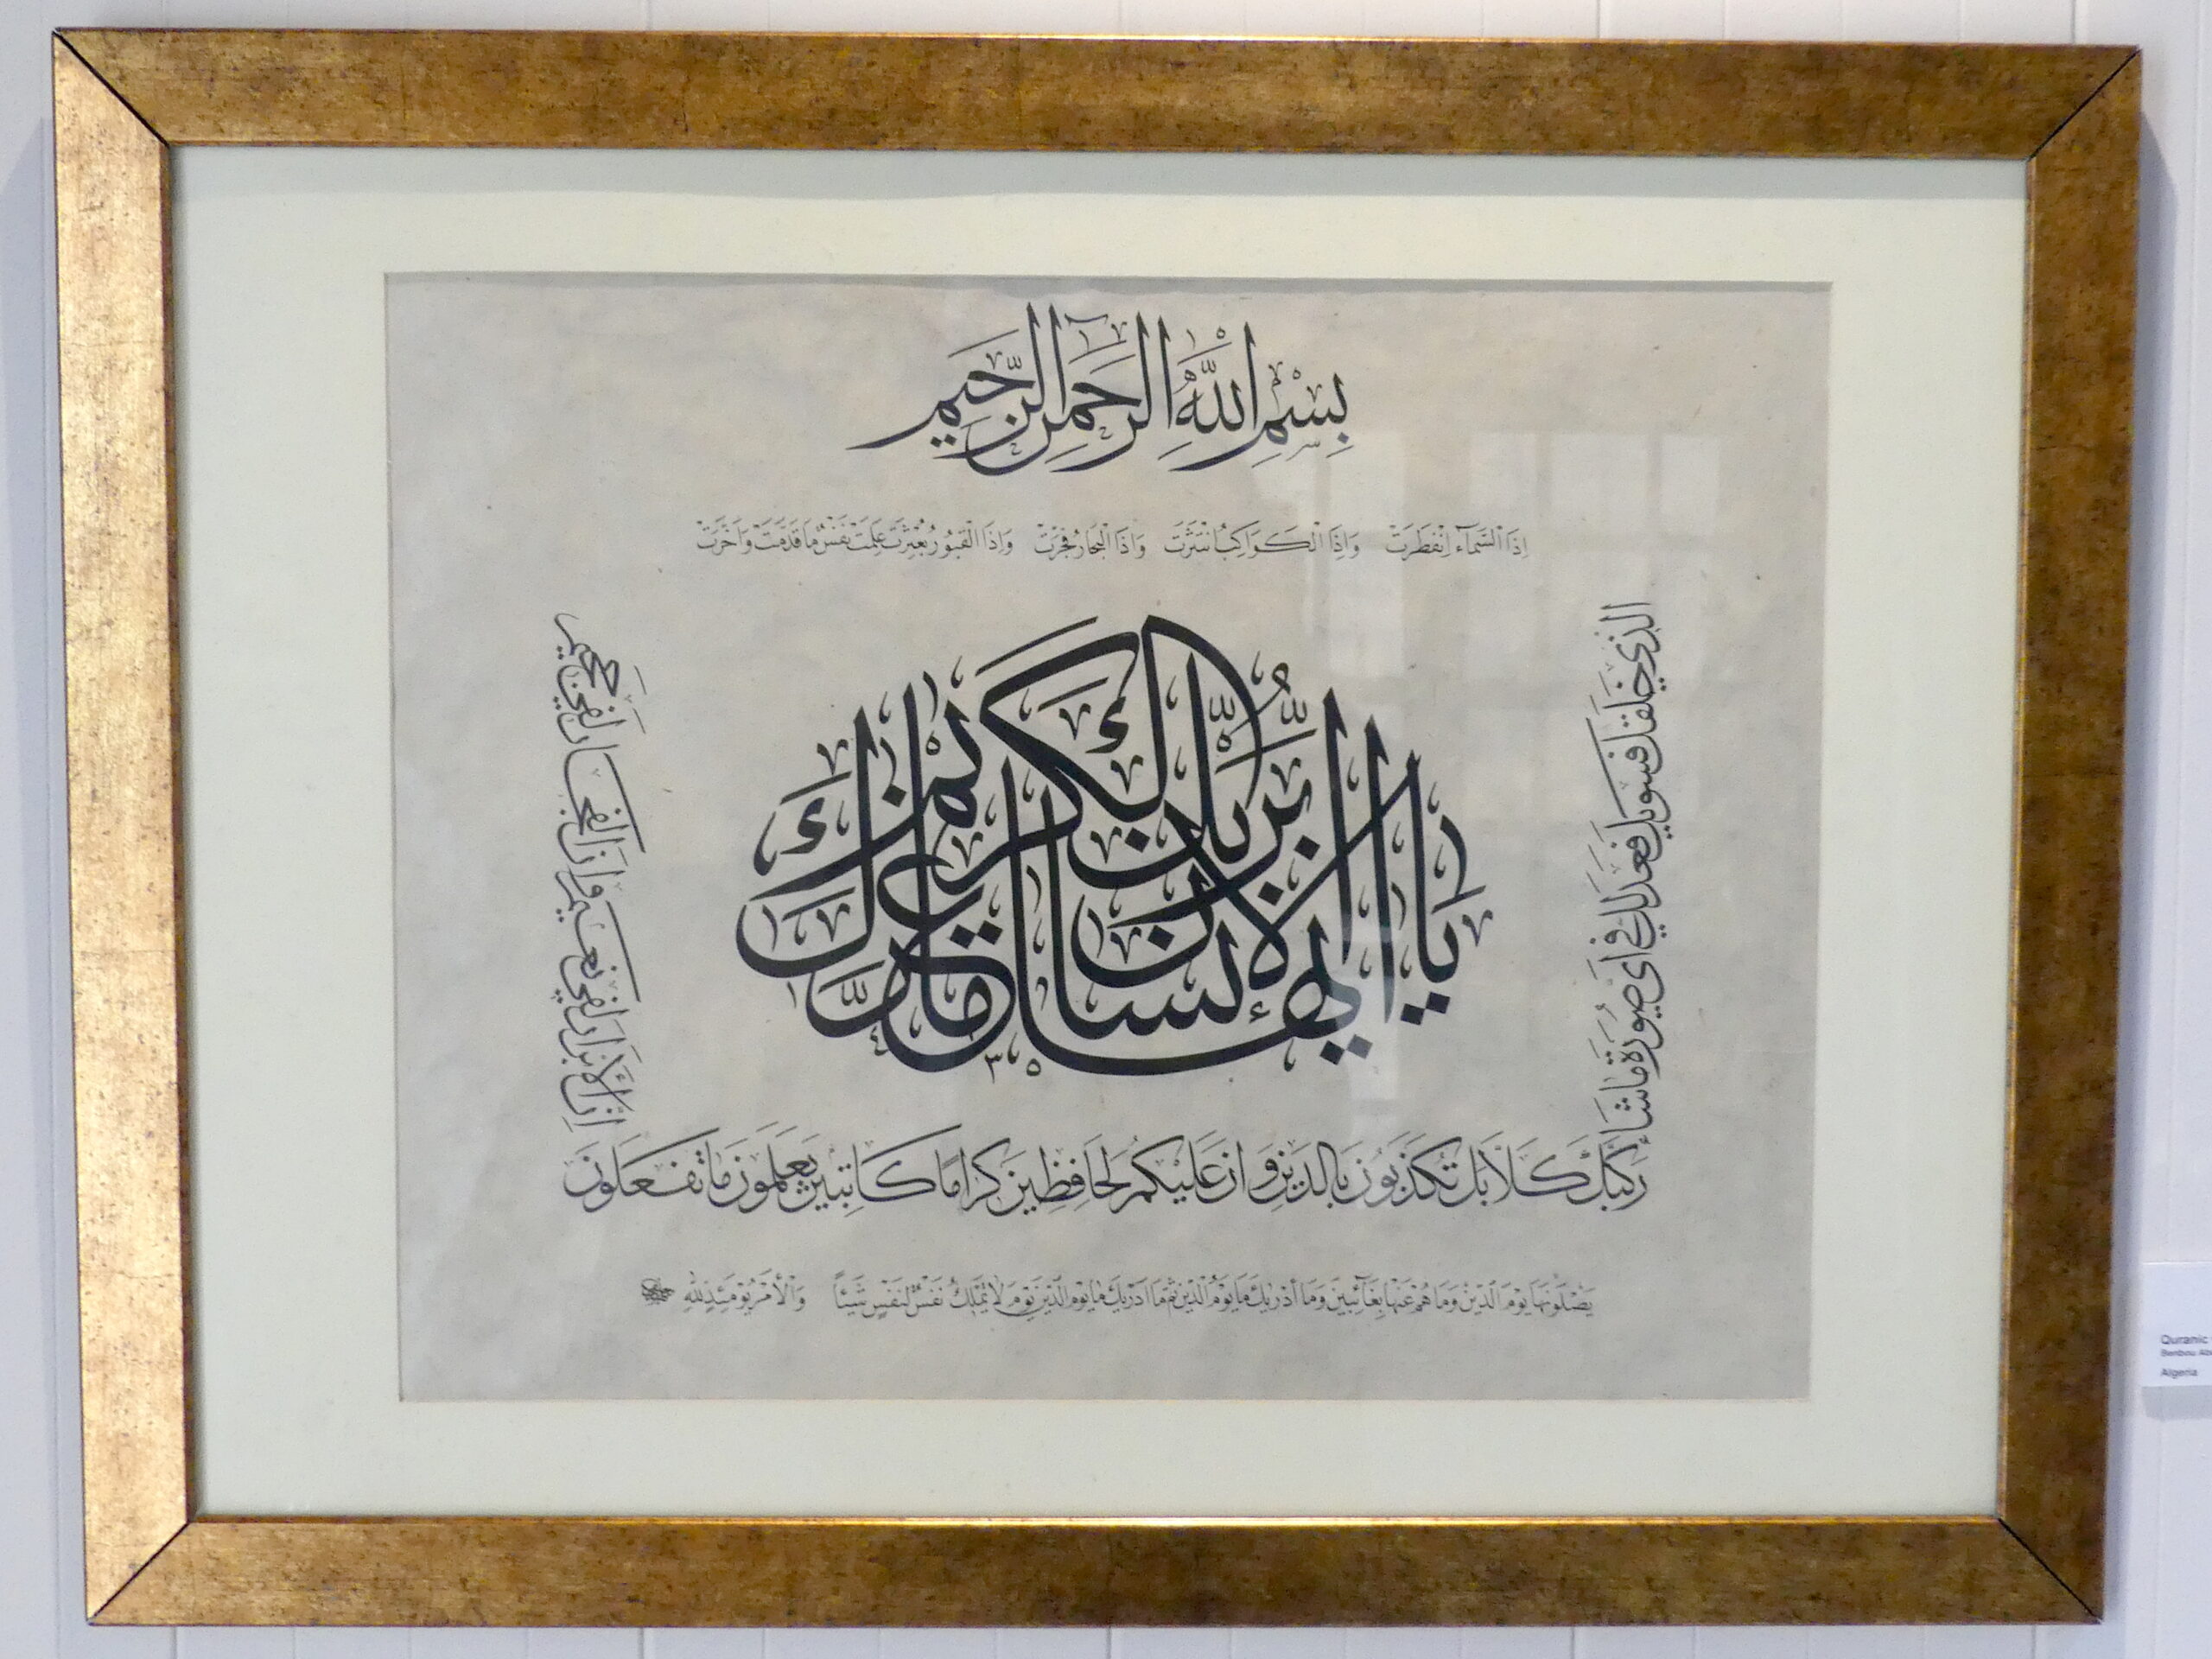 بِسْمِ اللَّهِ الرَّحْمٰنِ الرَّحِيمِ
إِذَا السَّمَاءُ انْفَطَرَتْ وَإِذَا الْكَوَاكِبُ انْتَثَرَتْ وَإِذَا الْبِحَارُ فُجِّرَتْ وَإِذَا الْقُبُورُ بُعْثِرَتْ عَلِمَتْ نَفْسٌ مَا قَدَّمَتْ وَأَخَّرَتْ
يا أيها الإنسان ما غرك بربك الكريم
الذي خلقك فسويك فعدلك في أي صورة ما شاء
ركبك كلا بل تكذبون بالدين وان عليكم لحافظين كراما كاتبين يعلمون ما تفعلون
إن الأبرار لفي نعيم وإن الفجار لفي جحيم
يَصْلَوْنَهَا يَوْمَ الدِّينِ وَمَا هُمْ عَنْهَا بِغَائِبِينَ وَمَا أَدْرٰيكَ مَا يَوْمُ الدِّينِ ثُمَّ مَا أَدْرٰيكَ مَا يَوْمُ الدِّينِ يَوْمَ لَا تَمْلِكُ نَفْسٌ لِنَفْسٍ شَيْئاً وَالْأَمْرُ يَوْمَئِذٍ لِلَّهِ
Quranic
Benbou
Algeria